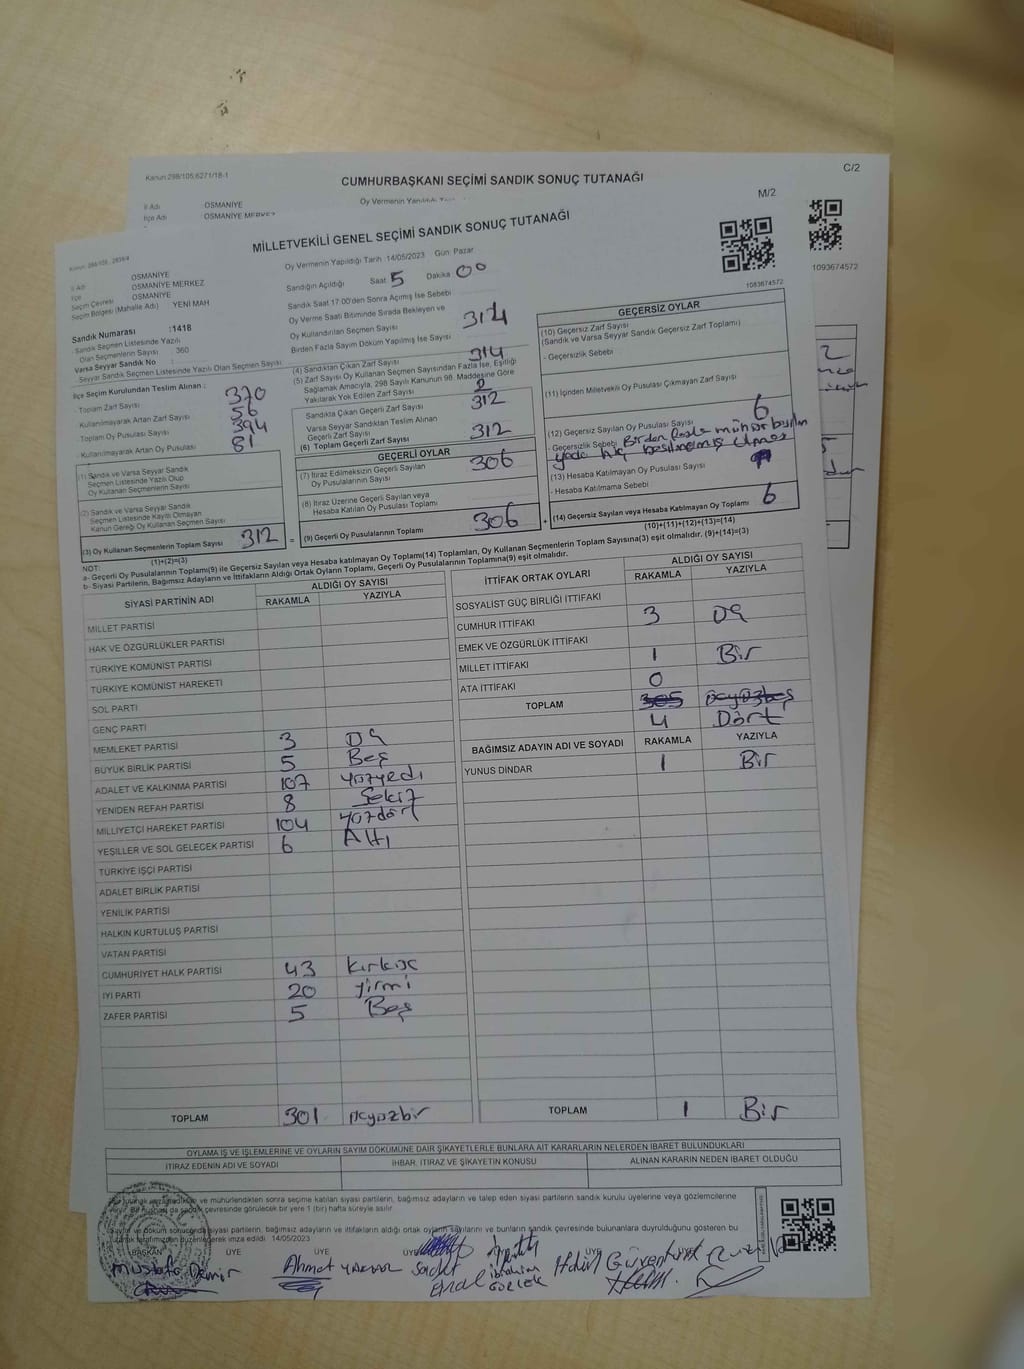 Kanun 298/105,6271/18-1
C/2
CUMHURBAŞKANI SEÇİMİ SANDIK SONUÇ TUTANAĞI
İl Adı OSMANİYE
İlçe Adı OSMANİYE MERKEZ
Oy Vermenin Yapıldığı
1093674572
2
M/2
MİLLETVEKİLİ GENEL SEÇİMİ SANDIK SONUÇ TUTANAĞI
İl Adı OSMANİYE
İlçe OSMANİYE MERKEZ
Seçim Çevresi OSMANİYE
Seçim Bölgesi (Mahalle Adı) YENİ MAH
Oy Vermenin Yapıldığı Tarih :14/05/2023 Gün: Pazar
Sandığın Açıldığı Saat 5 Dakika 00
Sandık Saat 17:00'den Sonra Açılmış İse Sebebi
1083674572
Sandık Numarası :1418
- Sandık Seçmen Listesinde Yazılı
Olan Seçmenlerin Sayısı 360
Varsa Seyyar Sandık No :
- Seyyar Sandık Seçmen Listesinde Yazılı Olan Seçmen Sayısı:
İlçe Seçim Kurulundan Teslim Alınan :
- Toplam Zarf Sayısı 370
Kullanılmayarak Artan Zarf Sayısı 56
Toplam Oy Pusulası Sayısı 394
- Kullanılmayarak Artan Oy Pusulası 81
(1) Sandık ve Varsa Seyyar Sandık
Seçmen Listesinde Yazılı Olup
Oy Kullanan Seçmenlerin Sayısı
(2) Sandık ve Varsa Seyyar Sandık
Seçmen Listesinde Kayıtlı Olmayan
Kanun Gereği Oy Kullanan Seçmen Sayısı
(3) Oy Kullanan Seçmenlerin Toplam Sayısı 312
(1)+(2)=(3)
Oy Verme Saati Bitiminde Sırada Bekleyen ve
Oy Kullandırılan Seçmen Sayısı 314
Birden Fazla Sayım Döküm Yapılmış İse Sayısı
(4) Sandıktan Çıkan Zarf Sayısı 314
(5) Zarf Sayısı Oy Kullanan Seçmen Sayısından Fazla İse, Eşitliği
Sağlamak Amacıyla, 298 Sayılı Kanunun 98. Maddesine Göre
Yakılarak Yok Edilen Zarf Sayısı 2
Sandıkta Çıkan Geçerli Zarf Sayısı 312
Varsa Seyyar Sandıktan Teslim Alınan
Geçerli Zarf Sayısı
(6) Toplam Geçerli Zarf Sayısı 312
GEÇERLİ OYLAR
(7) İtiraz Edilmeksizin Geçerli Sayılan
Oy Pusulalarının Sayısı 306
(8) İtiraz Üzerine Geçerli Sayılan veya
Hesaba Katılan Oy Pusulası Toplamı
= (9) Geçerli Oy Pusulalarının Toplamı 306
GEÇERSİZ OYLAR
(10) Geçersiz Zarf Sayısı
(Sandık ve Varsa Seyyar Sandık Geçersiz Zarf Toplamı)
- Geçersizlik Sebebi
(11) İçinden Milletvekili Oy Pusulası Çıkmayan Zarf Sayısı
(12) Geçersiz Sayılan Oy Pusulası Sayısı 6
- Geçersizlik Sebebi Birden fazla mühür basılan
yada hiç basılmamış olması
(13) Hesaba Katılmayan Oy Pusulası Sayısı
- Hesaba Katılmama Sebebi
+ (14) Geçersiz Sayılan veya Hesaba Katılmayan Oy Toplamı 6
(10)+(11)+(12)+(13)=(14)
NOT:
a- Geçerli Oy Pusulalarının Toplamı(9) ile Geçersiz Sayılan veya Hesaba katılmayan Oy Toplamı(14) Toplamları, Oy Kullanan Seçmenlerin Toplam Sayısına(3) eşit olmalıdır. (9)+(14)=(3)
b- Siyasi Partilerin, Bağımsız Adayların ve İttifakların Aldığı Ortak Oyların Toplamı, Geçerli Oy Pusulalarının Toplamına(9) eşit olmalıdır.
SİYASİ PARTİNİN ADI ALDIĞI OY SAYISI
RAKAMLA YAZIYLA
MİLLET PARTİSİ
HAK VE ÖZGÜRLÜKLER PARTİSİ
TÜRKİYE KOMÜNİST PARTİSİ
TÜRKİYE KOMÜNİST HAREKETİ
SOL PARTİ
GENÇ PARTİ
MEMLEKET PARTİSİ 3 Üç
BÜYÜK BİRLİK PARTİSİ 5 Beş
ADALET VE KALKINMA PARTİSİ 107 yüzyedi
YENİDEN REFAH PARTİSİ 8 Sekiz
MİLLİYETÇİ HAREKET PARTİSİ 104 yüzdört
YEŞİLLER VE SOL GELECEK PARTİSİ 6 Altı
TÜRKİYE İŞÇİ PARTİSİ
ADALET BİRLİK PARTİSİ
YENİLİK PARTİSİ
HALKIN KURTULUŞ PARTİSİ
VATAN PARTİSİ
CUMHURİYET HALK PARTİSİ 43 kırküç
İYİ PARTİ 20 yirmi
ZAFER PARTİSİ 5 Beş
TOPLAM 301 üçyüzbir
İTTİFAK ORTAK OYLARI ALDIĞI OY SAYISI
RAKAMLA YAZIYLA
SOSYALİST GÜÇ BİRLİĞİ İTTİFAKI
CUMHUR İTTİFAKI 3 Üç
EMEK VE ÖZGÜRLÜK İTTİFAKI
MİLLET İTTİFAKI 1 Bir
ATA İTTİFAKI 0
TOPLAM 305 üçyüzbeş
4 Dört
BAĞIMSIZ ADAYIN ADI VE SOYADI RAKAMLA YAZIYLA
YUNUS DİNDAR 1 Bir
TOPLAM 1 Bir
OYLAMA İŞ VE İŞLEMLERİNE VE OYLARIN SAYIM DÖKÜMÜNE DAİR ŞİKAYETLERLE BUNLARA AİT KARARLARIN NELERDEN İBARET BULUNDUKLARI
İTİRAZ EDENİN ADI VE SOYADI İHBAR, İTİRAZ VE ŞİKAYETİN KONUSU ALINAN KARARIN NEDEN İBARET OLDUĞU
ve mühürlendikten sonra seçime katılan siyasi partilerin, bağımsız adayların ve talep eden siyasi partilerin sandık kurulu üyelerine veya gözlemcilerine
verilir. Bir nüshası da sandık çevresinde görülecek bir yere 1 (bir) hafta süreyle asılır.
siyasi partilerin, bağımsız adayların ve ittifakların aldığı ortak oyların sayılarını ve bunların sandık çevresinde bulunanlara duyrulduğunu gösteren bu
tutanak tarafımızdan düzenlenerek imza edildi. 14/05/2023
BAŞKAN ÜYE ÜYE ÜYE
Mustafa Demir Ahmet Sadet ibrahim Halil Güven